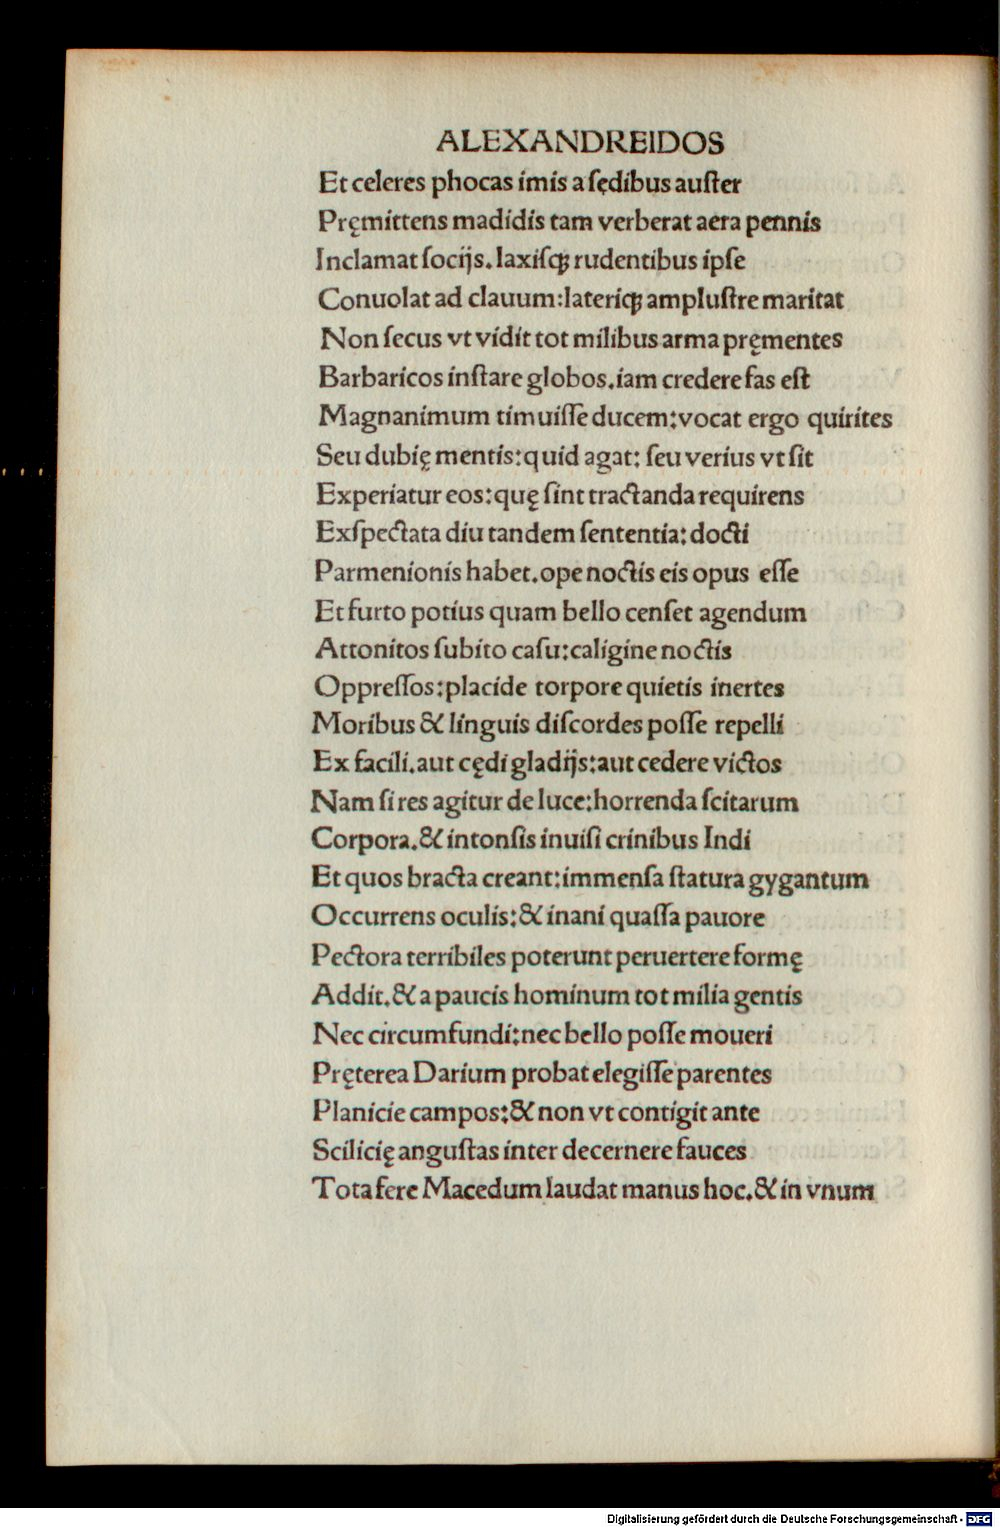 ALEXANDREIDOS
Et celeres phocas imis a sędibus auſter
Pręmittens madidis tam verberat aera pennis
Inclamat ſocijs. laxiſqꝫ rudentibus ipſe
Conuolat ad clauum: lateriqꝫ ampluſtre maritat
Non ſecus vt vidit tot milibus arma pręmentes
Barbaricos inſtare globos. iam credere fas eſt
Magnanimum timuiſſe ducem: vocat ergo quirites
Seu dubię mentis: quid agat: ſeu verius vt ſit
Experiatur eos: quę ſint tractanda requirens
Exſpectata diu tandem ſententia: docti
Parmenionis habet. ope noctis eis opus eſſe
Et furto potius quam bello cenſet agendum
Attonitos ſubito caſu: caligine noctis
Oppreſſos: placide torpore quietis inertes
Moribus & linguis diſcordes poſſe repelli
Ex facili. aut cędi gladijs: aut cedere victos
Nam ſi res agitur de luce: horrenda ſcitarum
Corpora. & intonſis inuiſi crinibus Indi
Et quos bracta creant: immenſa ſtatura gygantum
Occurrens oculis: & inani quaſſa pauore
Pectora terribiles poterunt peruertere formę
Addit. & a paucis hominum tot milia gentis
Nec circumfundi: nec bello poſſe moueri
Pręterea Darium probat elegiſſe parentes
Planicie campos: & non vt contigit ante
Scilicię anguſtas inter decernere fauces
Tota fere Macedum laudat manus hoc. & in vnum
Digitalisierung gefördert durch die Deutsche Forschungsgemeinschaft - DFG